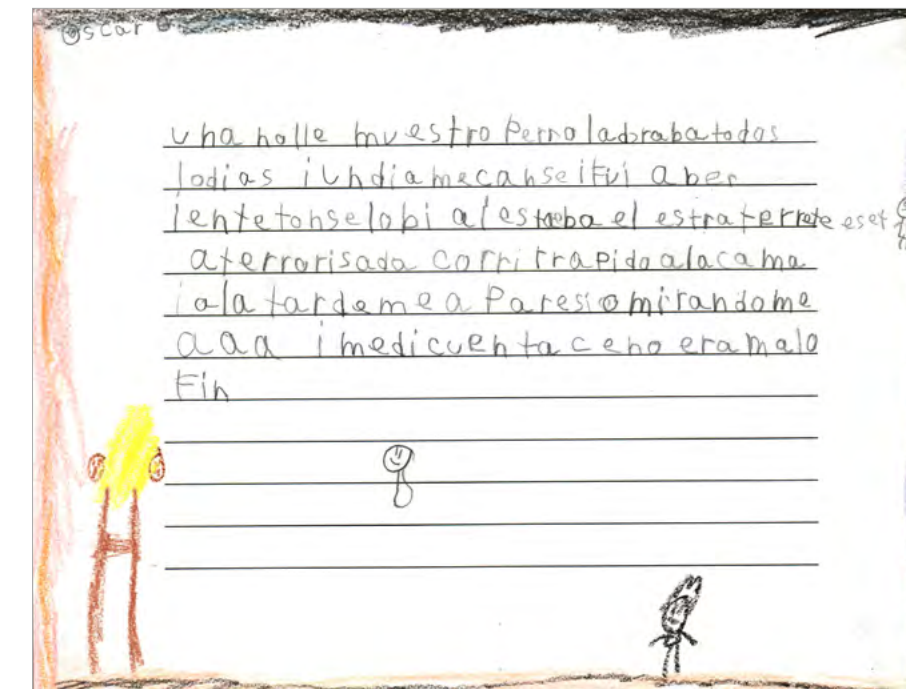 Oscar
una nolle muestro Perro ladrabatodos
lodias iundiamecanseifui aber
ientetonselobi alestaba el estraterrete eset
aterrorisada corrirrapidoalacama
ialatardemea Paresiomirandome
aaa imedicuenta cenoeramalo
Fin